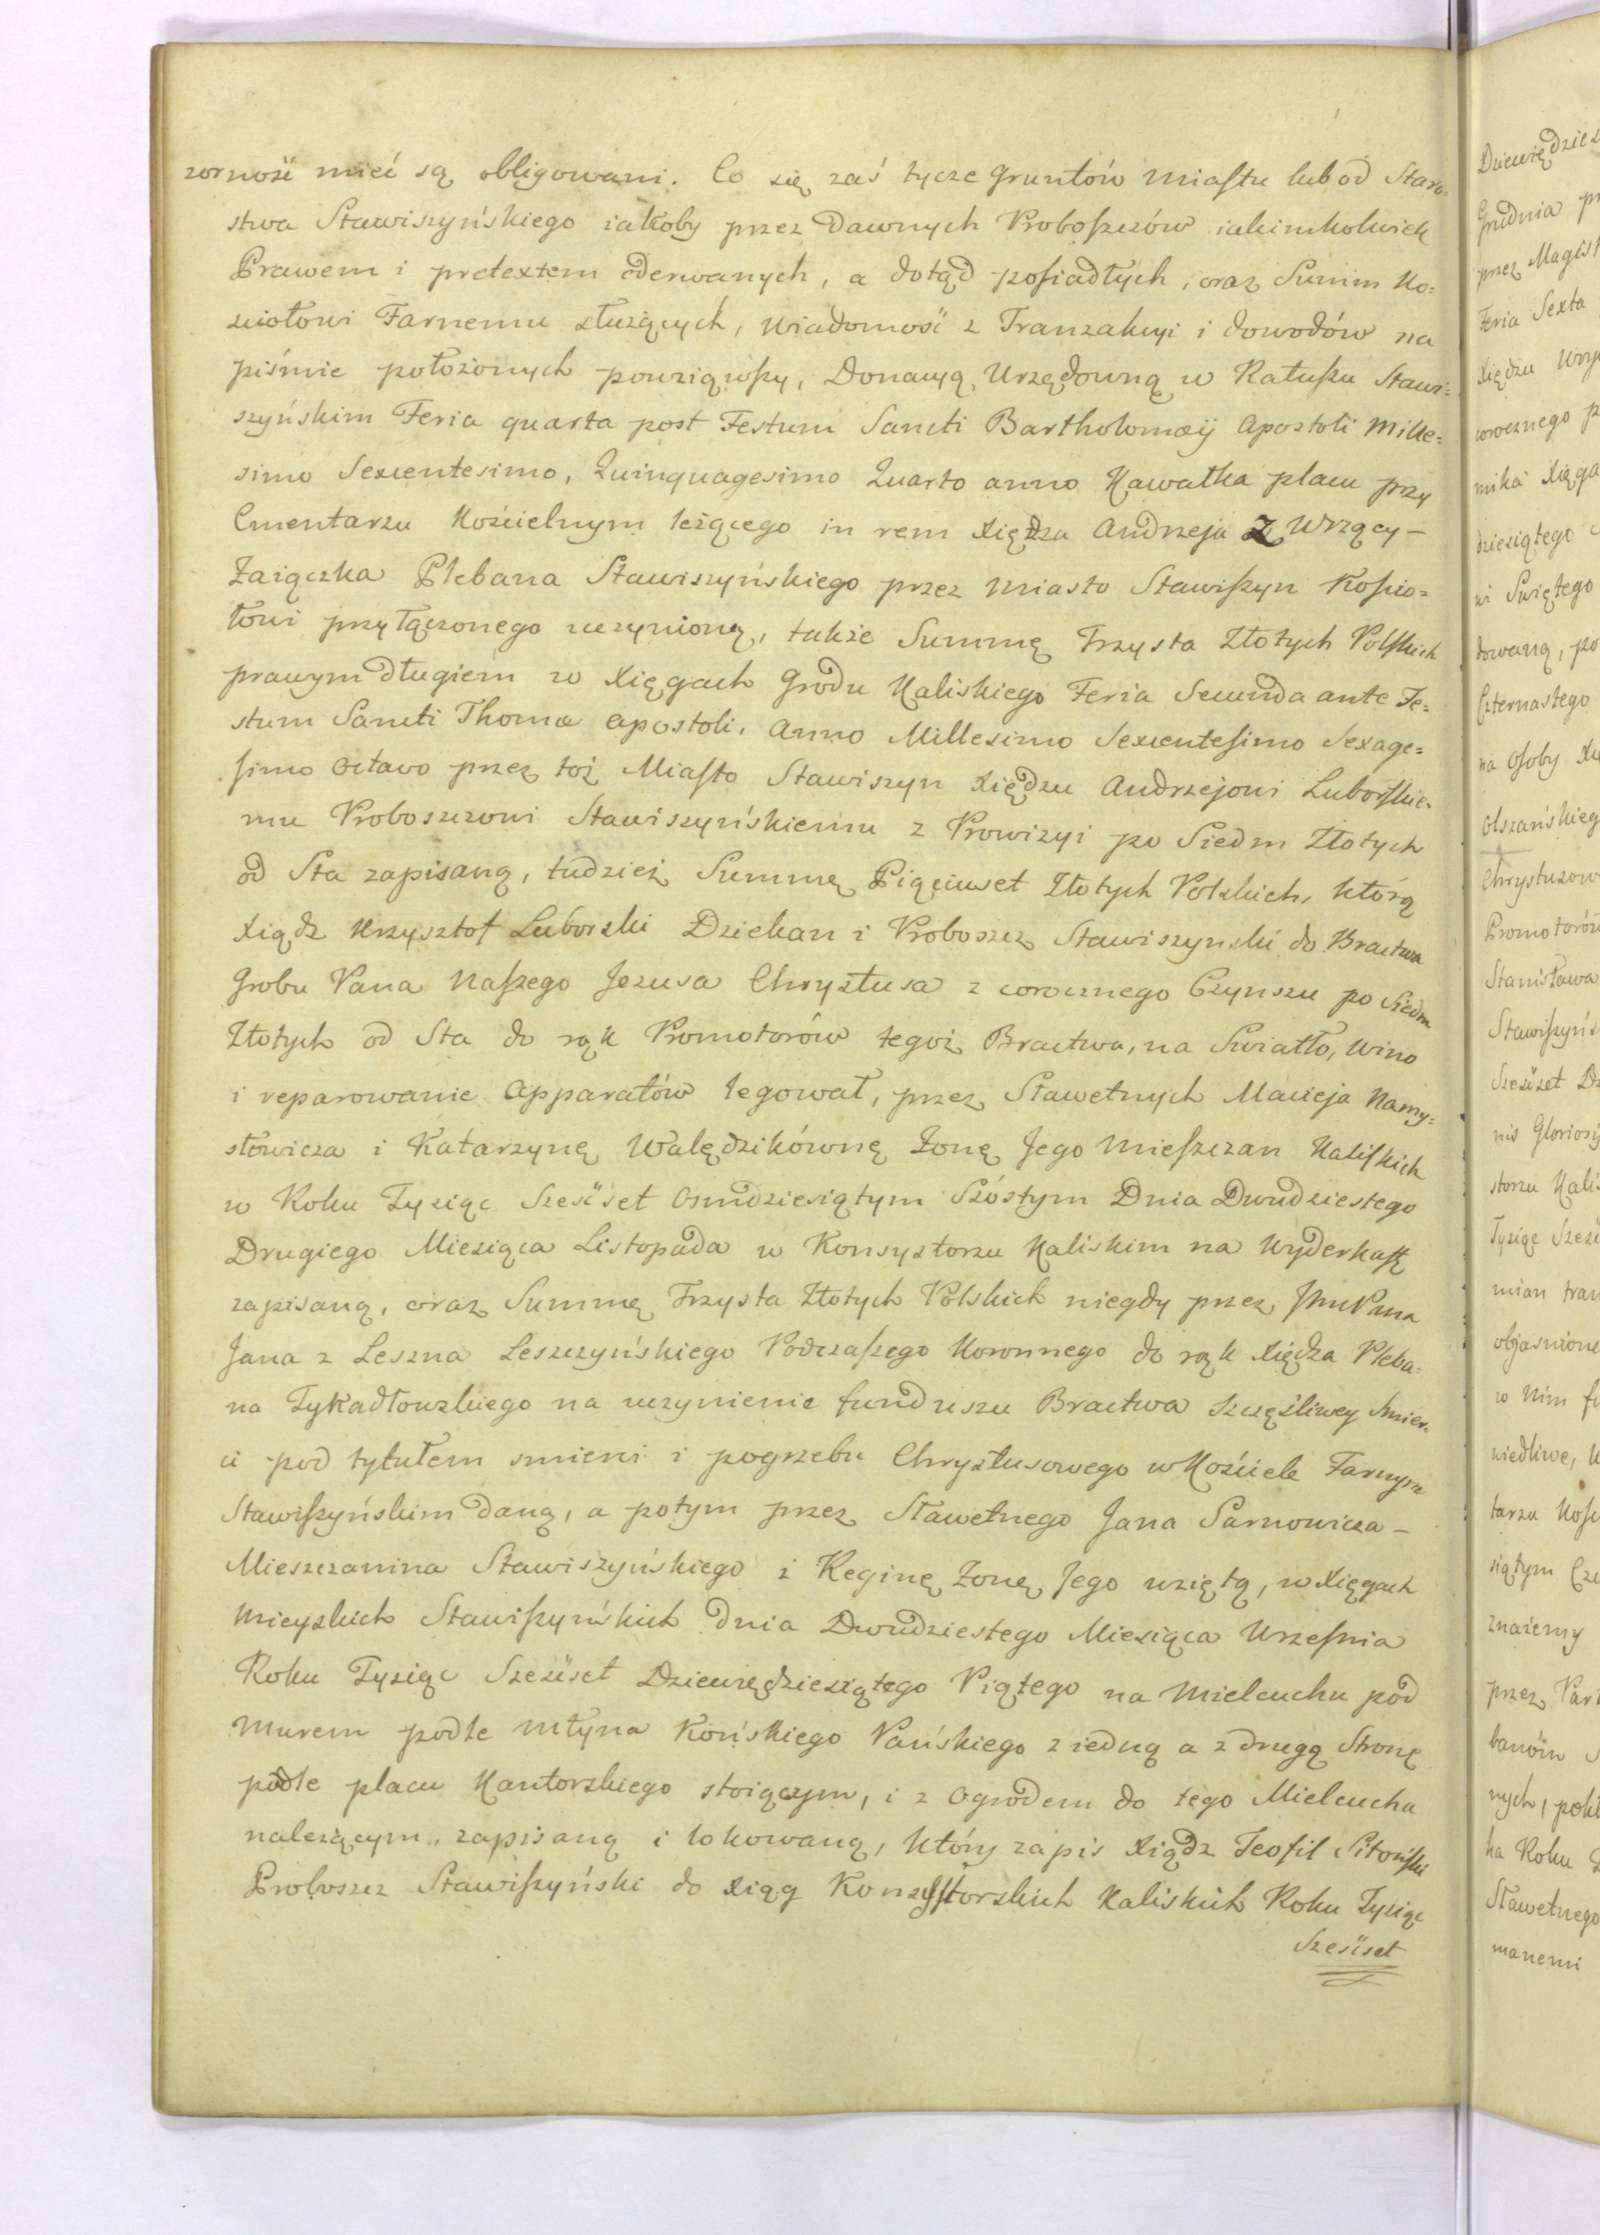 zorność mieć są obligowani. Co się zaś tycze Gruntów Miastu lub od Staro=
stwa Stawiszyńskiego iakoby przez Dawnych Proboszczów iakimkolwiek
Prawem i pretextem oderwanych, a dotąd posiadłych, oraz Summ Ko=
sciołowi Farnemu służących, wiadomość z Tranzakcyi i dowodów na
piśmie położonych powziąwszy, Donacyą Urzędowną w Ratuszu Stawi=
szyńskim Feria quarta post Festum Sancti Bartholomæij Apostoli Mille=
simo Sexcentesimo, Quinquagesimo Quarto anno Kawałka placu przy
Cmentarzu Kościelnym leżącego in rem Xiędza Andrzeja Z Wrzący –
Zaiączka Plebana Stawiszyńskiego przez Miasto Stawiszyn Koscio=
łowi przyłączonego uczynioną, także Summę Trzysta Złotych Polskich
prawym długiem w Xięgach Grodu Kaliskiego Feria Secunda ante Fe=
stum Sancti Thomæ Apostoli, Anno Millesimo Sexcentesimo Sexage=
simo Octavo przez toż Miasto Stawiszyn Xiędzu Andrzejowi Luborskie=
mu Proboszczowi Stawiszyńskiemu z Prowizyi po Siedm Złotych
od Sta zapisaną, tudzież Summę Pięciuset Złotych Polskich, którą
Xiądz Krzysztof Luborski Dziekan i Proboszcz Stawiszynski do Bractwa
Grobu Pana Naszego Jezusa Chrystusa z corocznego Czynszu po Siedm
Złotych od Sta do rąk Promotorów tegoż Bractwa, na Swiatło, Wino
i reparowanie Apparatów legował, przez Sławetnych Macieja Namy=
słowicza i Katarzynę Walędzikównę Żonę Jego Mieszczan Kaliskich
w Roku Tysiąc Sześćset Osmdziesiątym Szóstym Dnia Dwudziestego
Drugiego Miesiąca Listopada w Konsystorzu Kaliskim na Wyderkaff
zapisaną, oraz Summę Trzysta Złotych Polskich niegdy przez JmcPana
Jana z Leszna Leszczyńskiego Podczaszego Koronnego do rąk Xiędza Pleba=
na Tykadłowskiego na uczynienie funduszu Bractwa Szczęśliwey Smier=
ci pod tytułem smierci i pogrzebu Chrystusowego w Kościele Farnym
Stawiszyńskim daną, a potym przez Sławetnego Jana Sarnowicza –
Mieszczanina Stawiszyńskiego i Reginę Żonę Jego wziętą, w Xięgach
Mieyskich Stawiszyńskich dnia Dwudziestego Miesiąca Wrzesnia
Roku Tysiąc Sześćset Dziewiędziesiątego Piątego na Mielcuchu pod
Murem podle Młyna Końskiego Pańskiego z iedną a z drugą Stronę
podle placu Kantorskiego stoiącym, i z Ogrodem do tego Mielcucha
należącym, zapisaną i lokowaną, który zapis Xiądz Teofil
Proboszcz Stawiszyński do Xiąg Konsystorskich Kaliskich Roku Tysiąc
Sześćset
Grudnia
Feria Sexta
dziesiątego
Czternastego
na Osoby
Stanisława
Tysiąc
objasnione
w nim
znaiemy
Sławetnego